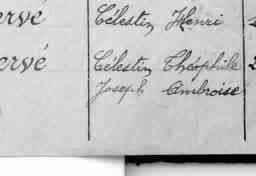 ervé Célestin Henri
ervé Célestin Théophile 2
Joseph Ambroise